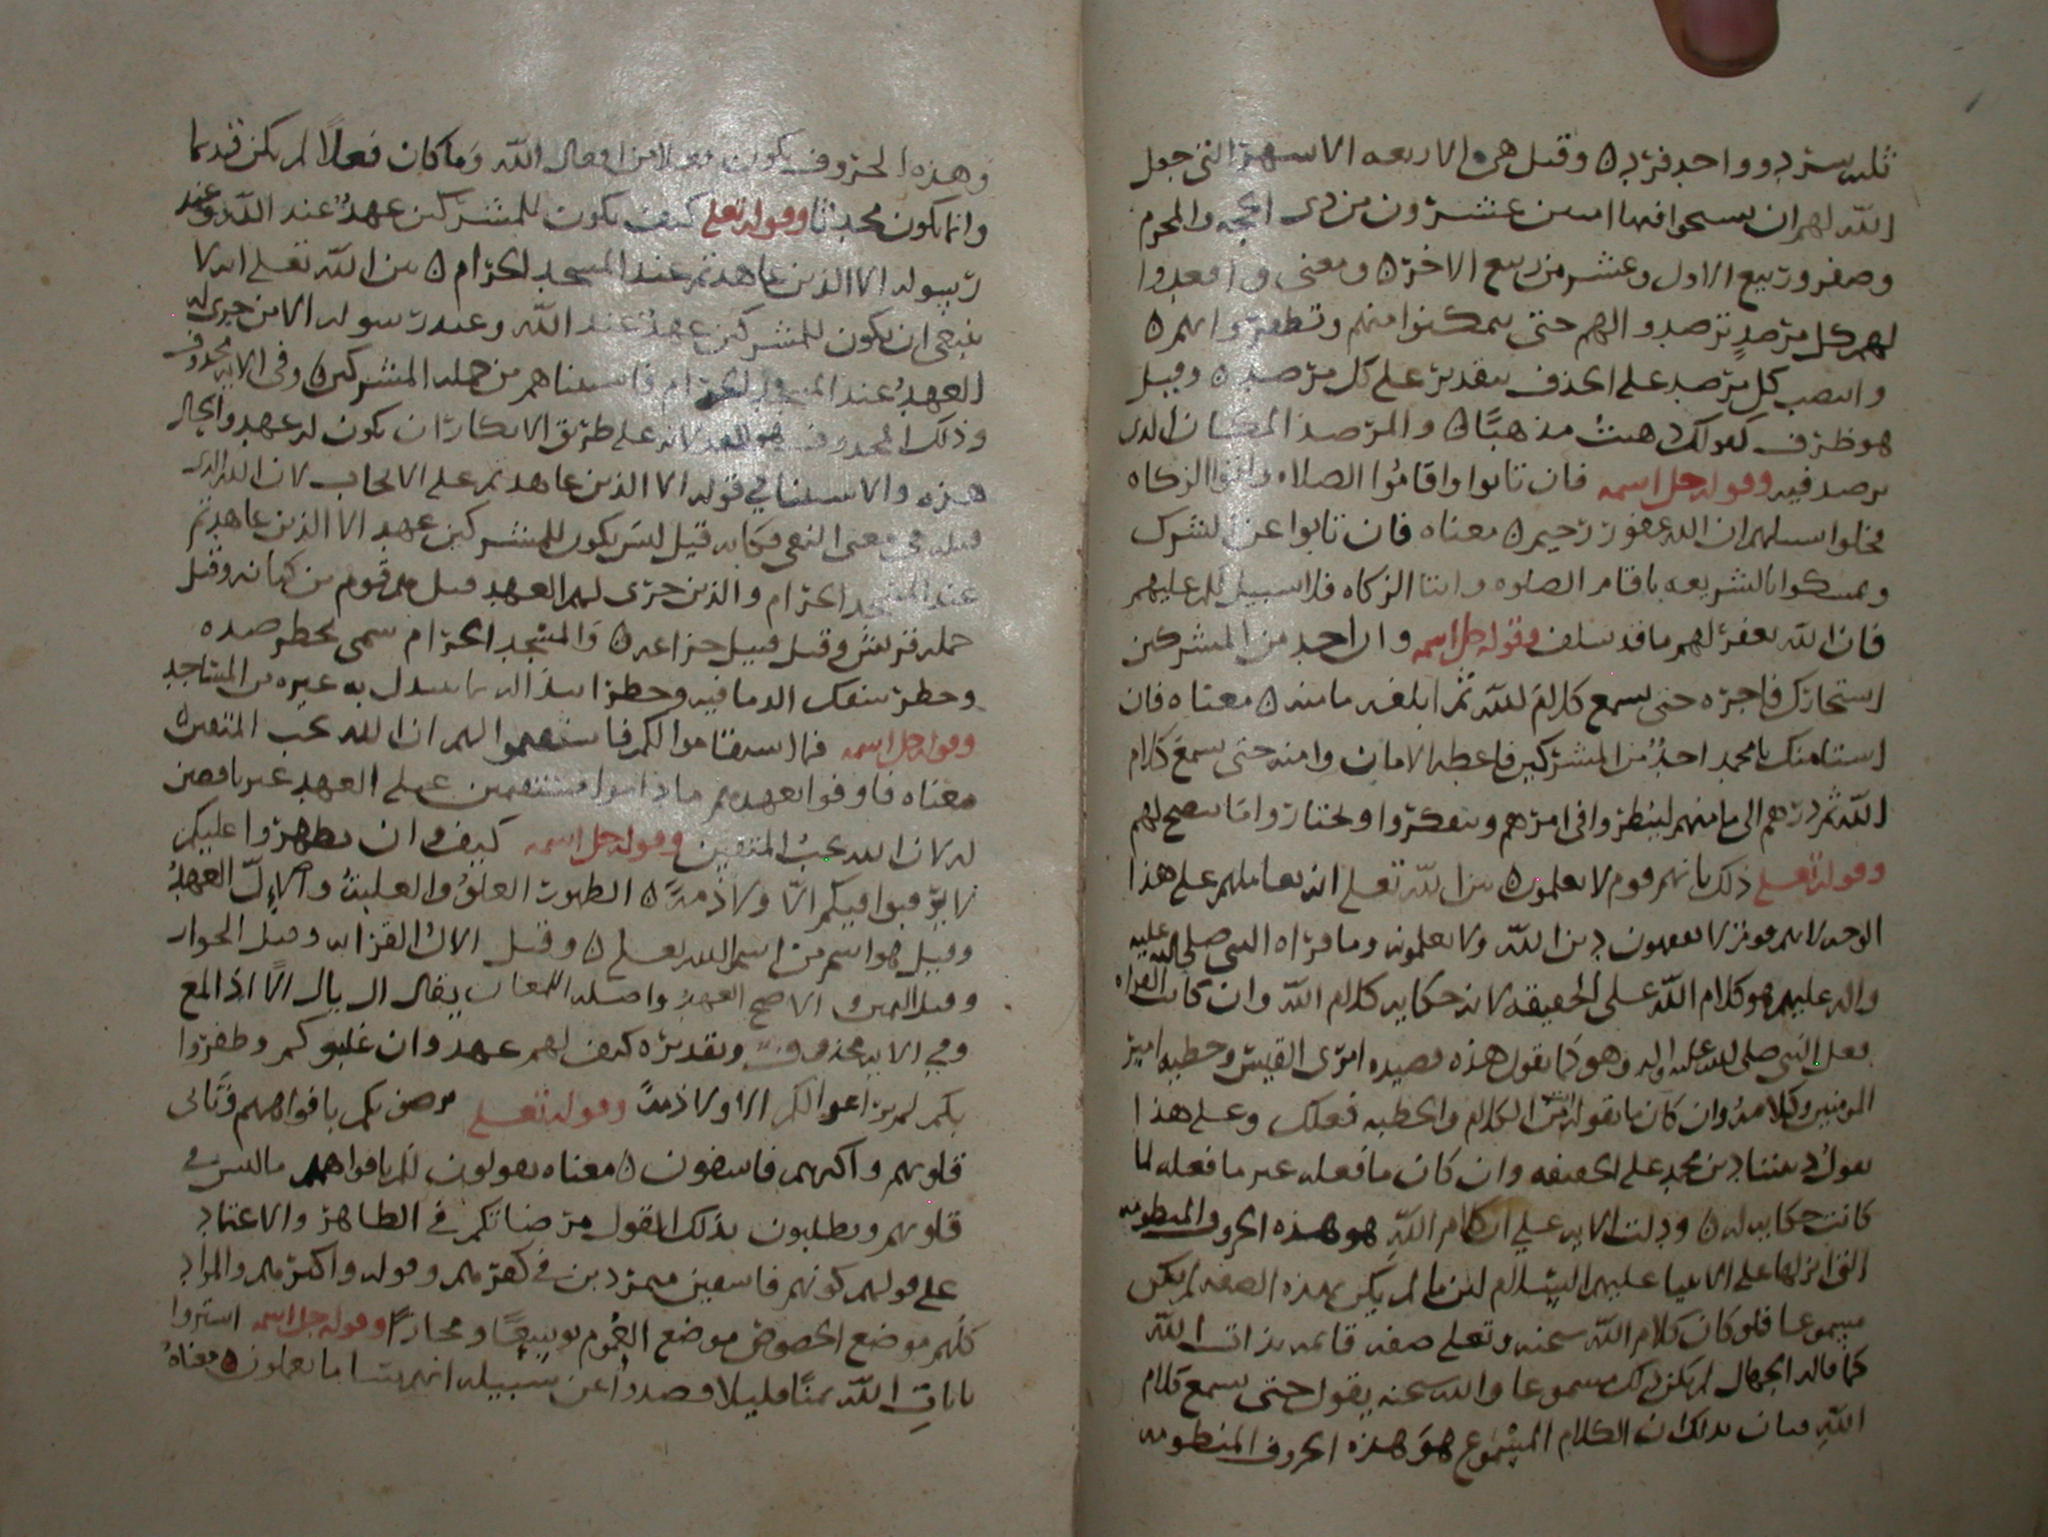 ثلثه سرد وواحد فرد ٥ وقيل هي الاربعه الاشهر التي جعل
الله لهم ان يسيحوا فيها امنين عشرون من ذي الحجه والمحرم
وصفر وربيع الاول وعشر من ربيع الاخر ٥ ومعنى واقعدوا
لهم كل مرصدٍ ترصدوا لهم حتى تتمكنوا منهم وتظفروا بهم ٥
وانتصب كل مرصد على الحذف بتقدير على كل مرصد ٥ وقيل
هو ظرف كقولك ذهبت مذهبًا ٥ والمرصد المكان الذي
يرصد فيه وقوله جل اسمه فان تابوا واقاموا الصلاه واتوا الزكاه
فخلوا سبيلهم ان الله غفور رحيم ٥ معناه فان تابوا عن الشرك
وتمسكوا بالشريعه باقام الصلوه وايتا الزكاه فلا سبيل لكم عليهم
فان الله يغفر لهم ما قد سلف وقوله جل اسمه وان احد من المشركين
استجارك فاجره حتى يسمع كلام الله ثم ابلغه مامنه ٥ معناه فان
استامنك يا محمد احدٌ من المشركين فاعطه الامان وامنه حتى يسمع كلام
الله ثم ردهم الى مامنهم لينظروا في امرهم ويتفكروا ويختاروا ما يصح لهم
وقوله تعلى ذلك بانهم قوم لا يعلمون ٥ بين الله تعلى انه يعاملهم على هذا
الوجه لانهم قوم لا يفقهون دين الله ولا يعلمونه وما قراه النبي صلى الله عليه
واله عليهم هو كلام الله على الحقيقه لانه حكايه كلام الله وان كانت القراه
فعل النبي صلى الله عليه واله وهو كما يقول هذه قصيده امرى القيس وخطبه امير
المومنين وكلامه وان كان ما يقوله من الكلام والخطبه فعلك وعلى هذا
يقول ديننا دين محمد على الحقيقه وان كان ما فعله غير ما فعله لما
كانت حكايه له ٥ ودلت الايه على ان كلام الله هو هذه الحروف المنظومه
التي انزلها على الانبيا عليهم السلام لان ما لم يكن بهذه الصفه لم يكن
مسموعا فلو كان كلام الله سبحنه وتعلى صفه قايمه بذات الله
كما قاله الجهال لم يكن ذلك مسموعا والله سبحنه يقول حتى يسمع كلام
الله فبان بذلك ان الكلام المسموع هو هذه الحروف المنظومه
وهذه الحروف يكون فعلا من افعال الله وما كان فعلاً لم يكن قديما
وانما يكون محدثا وقوله تعلى كيف يكون للمشركين عهدٌ عند الله وعند
رسوله الا الذين عاهدتم عند المسجد الحرام ٥ بين الله تعلى انه لا
ينبغي ان يكون للمشركين عهدٌ عند الله وعند رسوله الا من جرى له
العهدُ عند المسجد الحرام فاستثناهم من جمله المشركين ٥ وفي الايه محذوف
وذلك المحذوف هو لانه على طريق الانكار ان يكون لهم عهد والحال
هذه والاستثنا في قوله الا الذين عاهدتم على الايجاب لان الكلام الذي
قبله في معنى النفي فكانه قيل ليس يكون للمشركين عهد الا الذين عاهدتم
عند المسجد الحرام والذين جرى لهم العهد قيل هم قوم من كنانه وقيل
جمله قريش وقيل قبيل خزاعه ٥ والمسجد الحرام سمي لحظر صيده
وحظر سفك الدما فيه وحظر ابتذاله بما يبتذل به غيره من المساجد
وقوله جل اسمه فما استقاموا لكم فاستقيموا لهم ان الله يحب المتقين ٥
معناه فاوفوا بعهدهم ما داموا مستقيمين على العهد غير ناقضين
له لان الله يحب المتقين وقوله جل اسمه كيف وان يظهروا عليكم
لا يرقبوا فيكم الاّ ولا ذمةً ٥ الظهور العلوّ والغلبة والإلّ العهدُ
وقيل هو اسم من اسم الله تعلى ٥ وقيل الال القرابه وقيل الجوار
وقيل اليمين والاصح العهد واصله اللمعان يقال ال يال الاً اذا لمع
وفي الايه محذوف وتقديره كيف لهم عهد وان غلبوكم وظفروا
بكم لم يراعوا لكم الا ولا ذمةً وقوله تعلى يرضونكم بافواههم وتابى
قلوبهم واكثرهم فاسقون ٥ معناه يقولون لكم بافواههم ما ليس في
قلوبهم ويطلبون بذلك القول مرضاتكم في الظاهر والاعتماد
على قولهم كونهم فاسقين متمردين في كفرهم وقوله واكثرهم والمراد
كلهم موضع الخصوص موضع العموم توسعًا ومجازًا وقوله جل اسمه اشتروا
بايات الله ثمنًا قليلا فصدوا عن سبيله انهم سا ما يعملون ٥ معناهُ